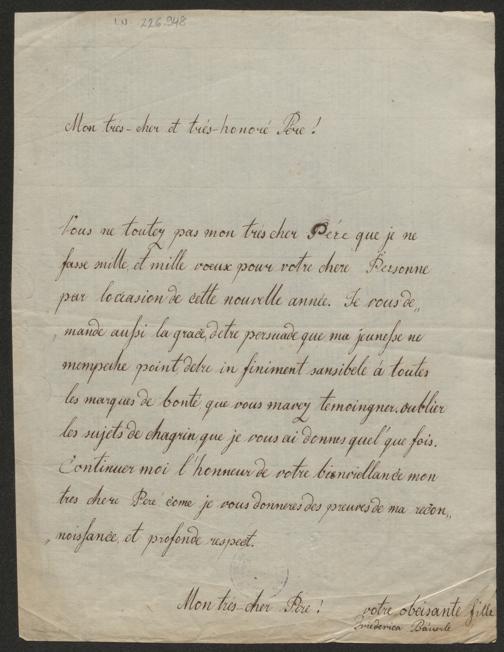 I.N. 226.948
Mon trés-cher et trés-honoré Pére !
Vous ne toutez pas mon tres cher Pére que je ne
fasse mille, et mille voeux pour votre chere Personne
par l'occasion de cette nouvelle année. Je vous de„
„mande aussi la grace, detre persuade que ma jeunesse ne
mempeche point detre in finiment sansibele á toutes
les marques de bonté que vous mavez temoingner. oublier
les sujets de chagrin que je vous ai donnes quel'que fois.
Continuer moi l'honneur de votre bienveillance mon
tres chere Peré come je vous donneres des preuves de ma recon„
„noissance, et profonde respect.
Mon trés-cher Pére ! votre obeisante fille
Friederica Bäuerle